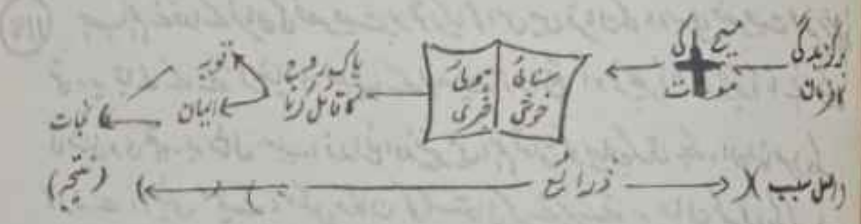 برگزیدگی کا فرمان
مسیح کی موت
سنائی ہوئی خوشخبری
پاک روح کا قائل کرنا
توبہ
ایمان
نجات
(اصل سبب) ذرائع (نتیجہ)